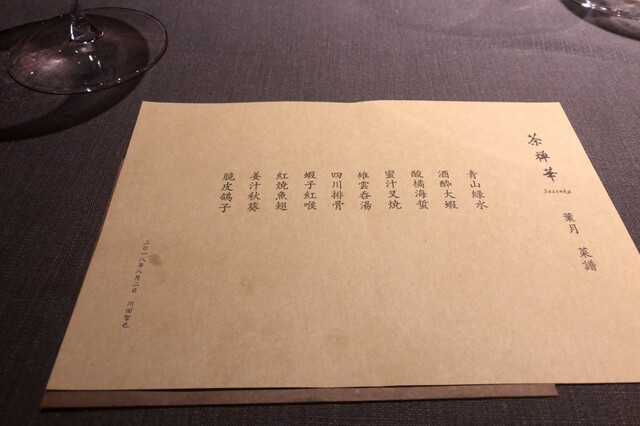 茶禅華
Sazenka
葉月 菜譜
青山緑水
酒醉大蝦
酸橘海蜇
蜜汁叉焼
雉雲呑湯
四川排骨
蝦子紅喉
紅焼魚翅
姜汁秋葵
脆皮鴿子
二〇一八年八月二日 川田智也